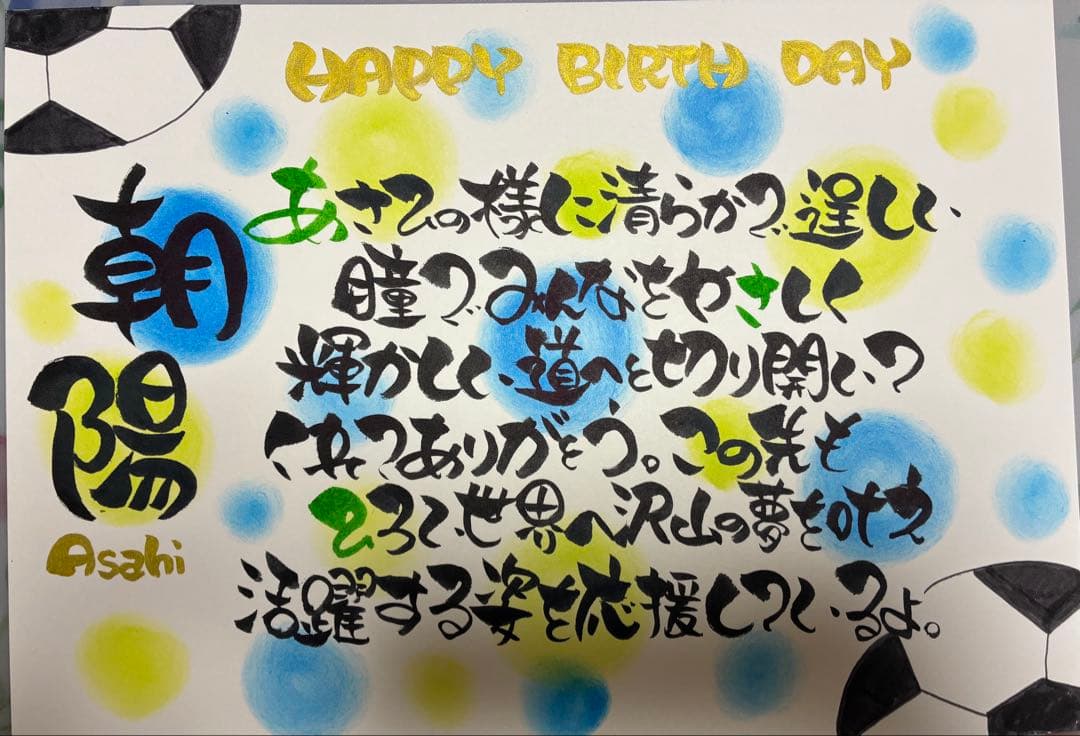 HAPPY BIRTH DAY
朝陽
Asahi
あさひの様に清らかで逞しい
瞳で、みんなをやさしく
輝かしい道へと切り開いて
くれてありがとう。この先も
ひろい世界へ沢山の夢を叶え
活躍する姿を応援しているよ。